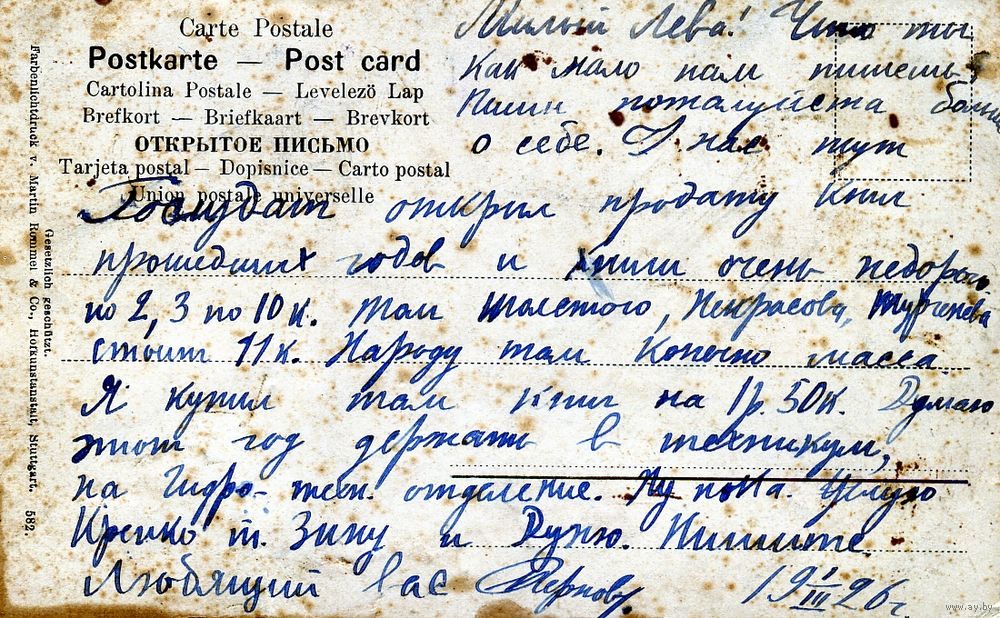 Carte Postale
Postkarte — Post card
Cartolina Postale — Levelező Lap
Brefkort — Briefkaart — Brevkort
ОТКРЫТОЕ ПИСЬМО
Tarjeta postal — Dopisnice — Carto postal
Union postale universelle
Farbenlichtdruck v. Martin Rommel & Co., Hofkunstanstalt, Stuttgart. 582.
Gesetzlich geschützt.
Милый Лева! Что ты
как мало нам пишешь,
Пиши пожалуйста больше
о себе. У нас тут
Госиздат открыл продажу книг
прошедших годов и книги очень недорого
по 2, 3 по 10 к. Там Толстого, Некрасова, Тургенева
стоит 11 к. Народу там конечно масса
Я купил там книг на 1 р. 50 к. Думаю
этот год держать в техникум,
на Гидро-тех. отделение. Ну пока. Целую
Крепко т. Зину и Дуню. Пишите.
Любящий вас
19 1/III 26 г.
www.ay.by